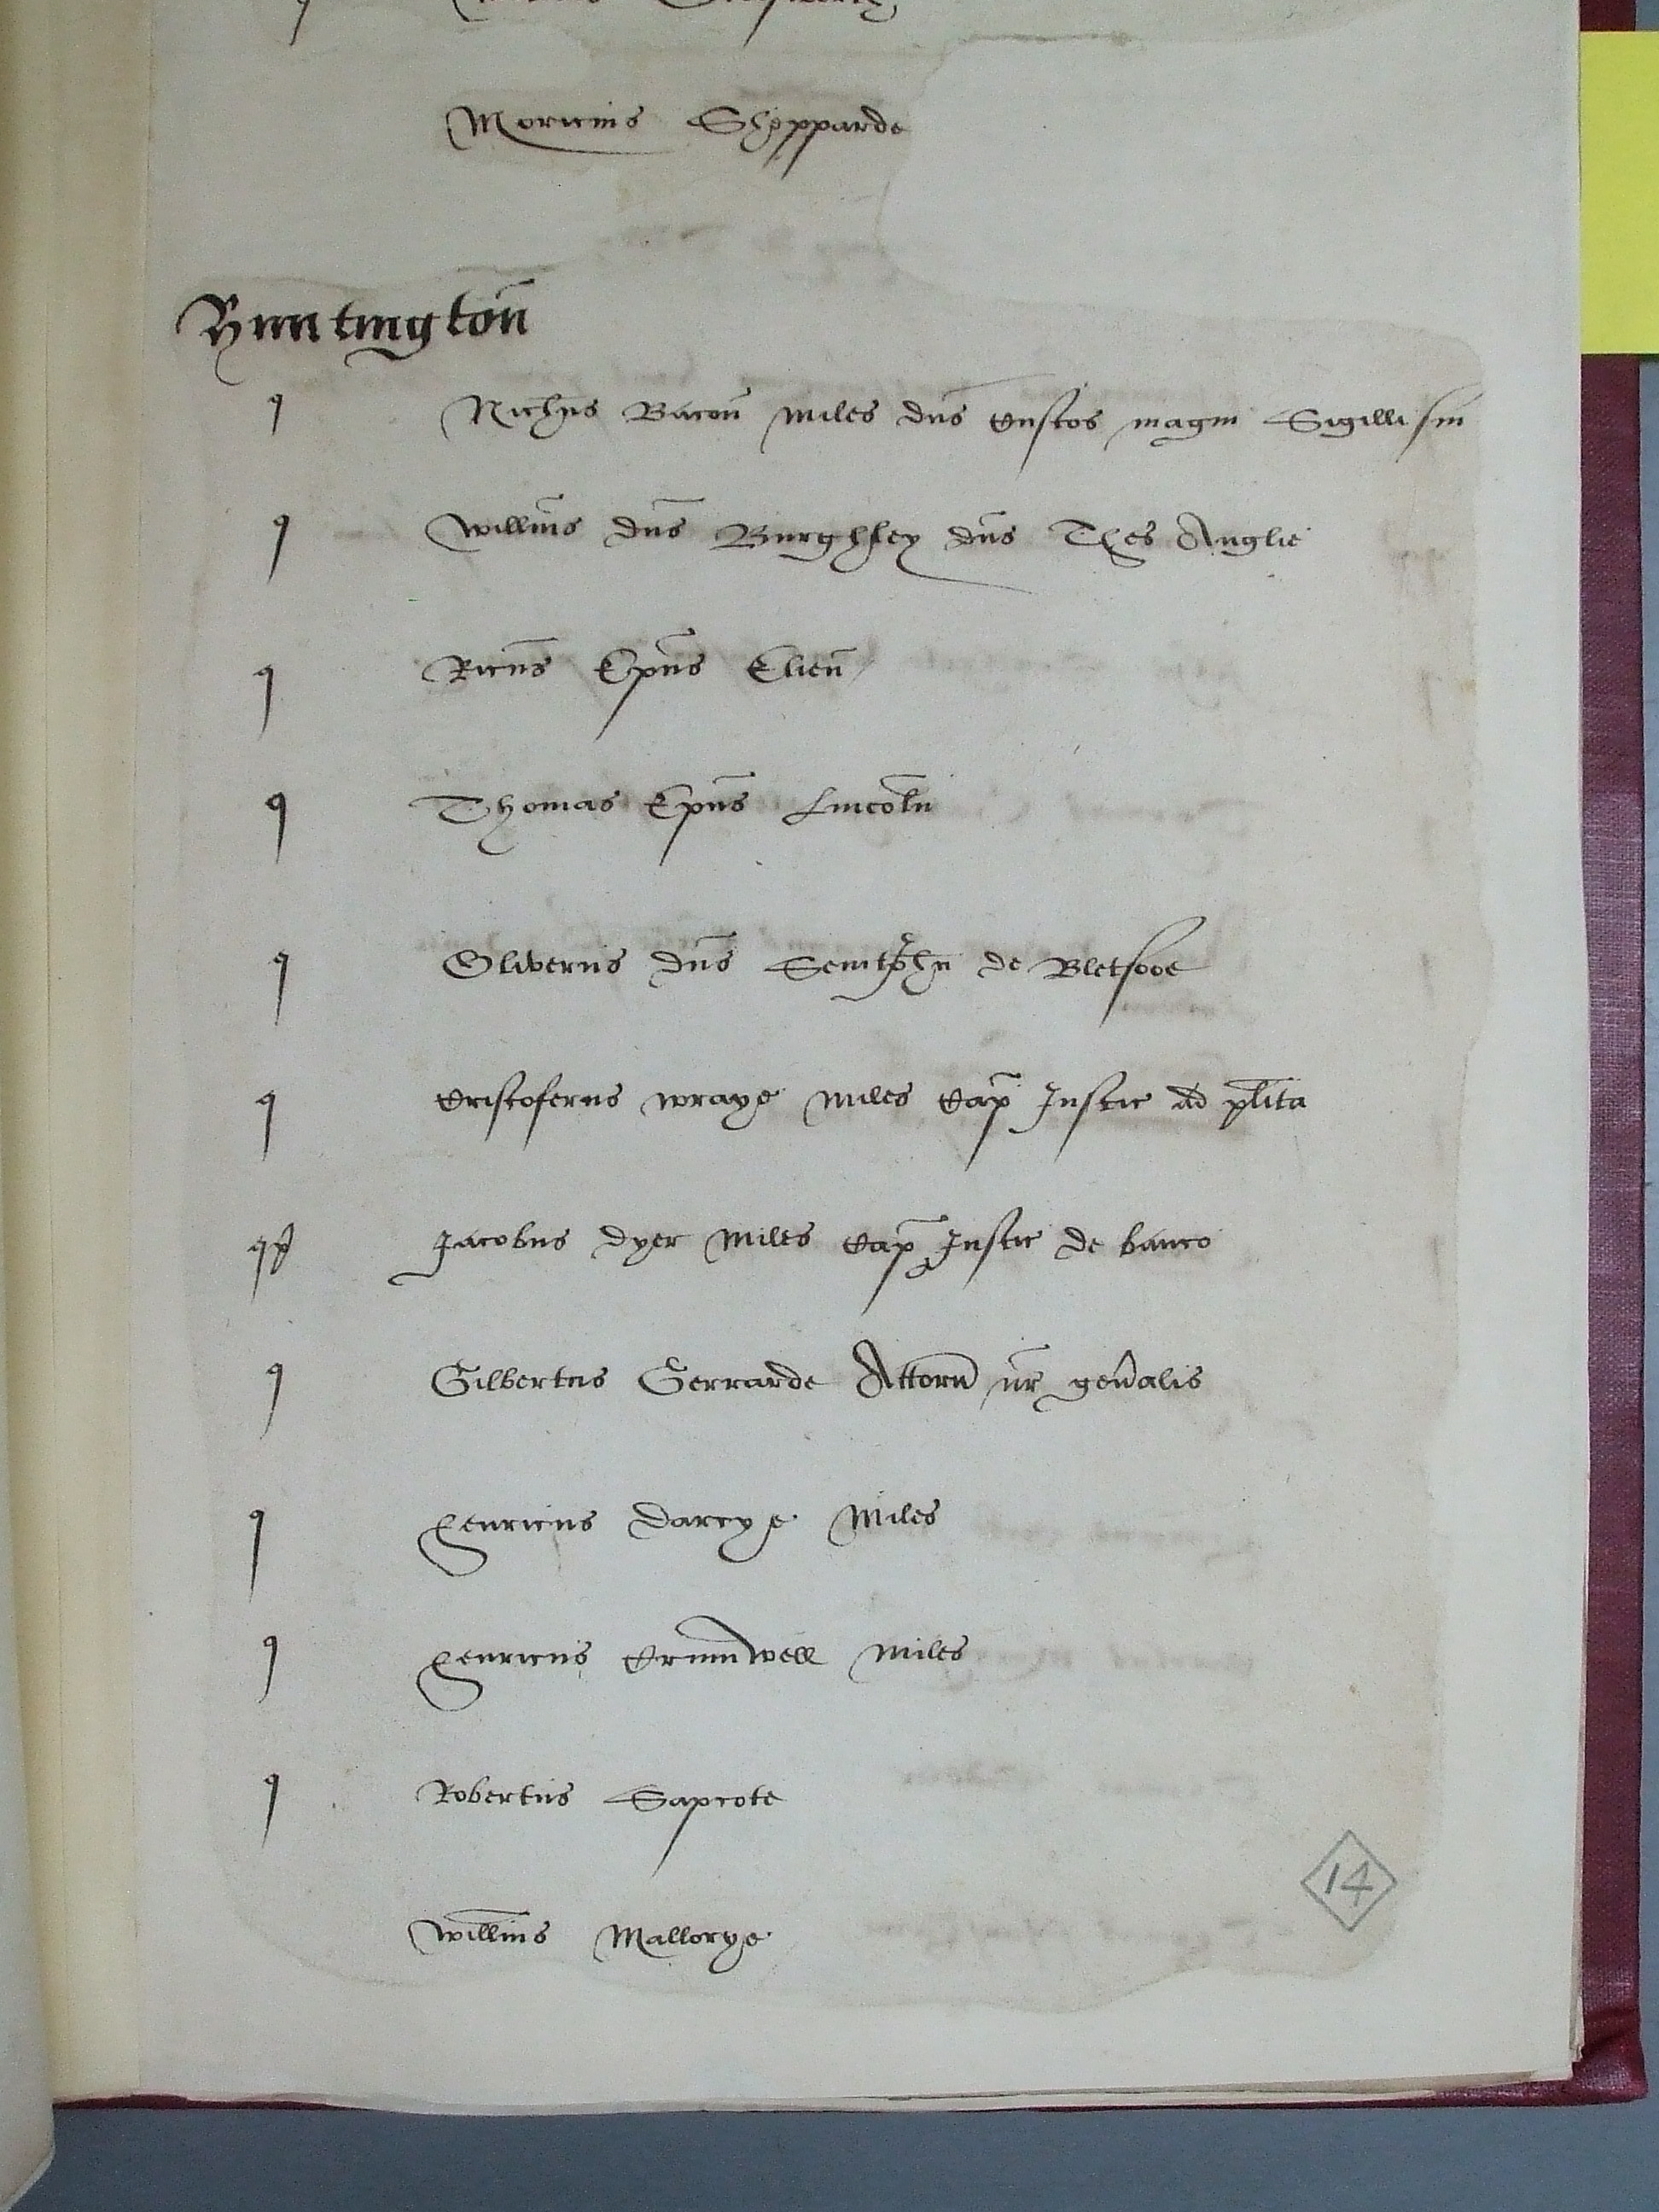 Moricius Shepparde
Huntington
q Nichus Bacon Miles dns Custos magni Sigilli sui
q Willms dns Burghley dns Thes Anglie
q Ricus Epus Elien
q Thomas Epus Lincoln
q Oliverus dns SeintJohn de Bletsooe
q Cristoferus wraye Miles Cap Justic ad plita
q Jacobus dyer Miles Cap Justic de banco
q Gilbertus Gerrarde Attorn nr genalis
q Henricus darcye Miles
q Henricus Crumwell Miles
q Robertus Sapcote
Willms Mallorye
14